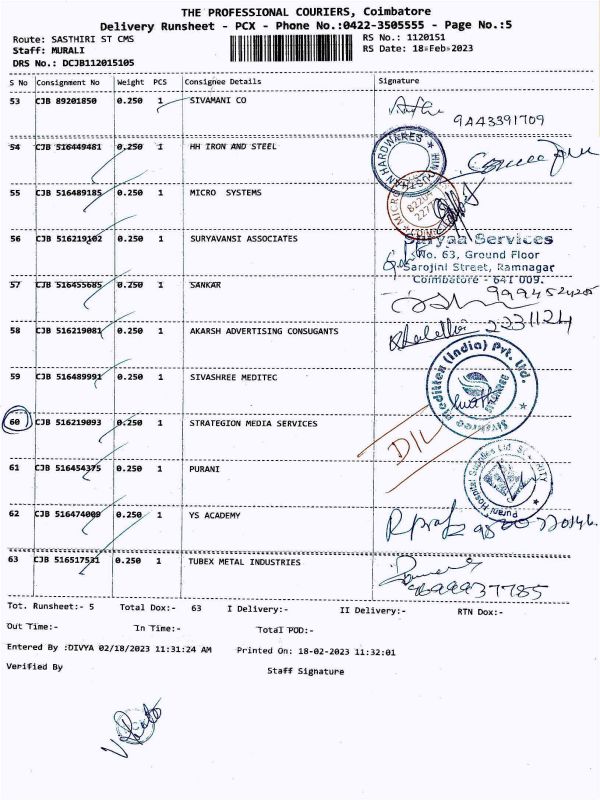 THE PROFESSIONAL COURIERS, Coimbatore
Delivery Runsheet - PCX - Phone No.:0422-3505555 - Page No.:5
Route: SASTHIRI ST CMS RS No.: 1120151
Staff: MURALI RS Date: 18-Feb-2023
DRS No.: DCJB112015105
S No Consignment No Weight PCS Consignee Details Signature
53 CJB 89201850 0.250 1 SIVAMANI CO
9443391709
54 CJB 516449481 0.250 1 HH IRON AND STEEL
HARDWARES
55 CJB 516489185 0.250 1 MICRO SYSTEMS
56 CJB 516219102 0.250 1 SURYAVANSI ASSOCIATES
Services
No. 63, Ground Floor
Sarojini Street, Ramnagar
Coimbatore - 641 009.
57 CJB 516455685 0.250 1 SANKAR
58 CJB 516219081 0.250 1 AKARSH ADVERTISING CONSUGANTS
2231124
59 CJB 516489991 0.250 1 SIVASHREE MEDITEC
Sivashree Meditten (India) Pvt. Ltd.
60 CJB 516219093 0.250 1 STRATEGION MEDIA SERVICES
D/L
61 CJB 516454375 0.250 1 PURANI
Purani Hospital Supplies Ltd SECURITY
62 CJB 516474009 0.250 1 YS ACADEMY
63 CJB 516517531 0.250 1 TUBEX METAL INDUSTRIES
Tot. Runsheet:- 5 Total Dox:- 63 I Delivery:- II Delivery:- RTN Dox:-
Out Time:- In Time:- Total POD:-
Entered By :DIVYA 02/18/2023 11:31:24 AM Printed On: 18-02-2023 11:32:01
Verified By Staff Signature